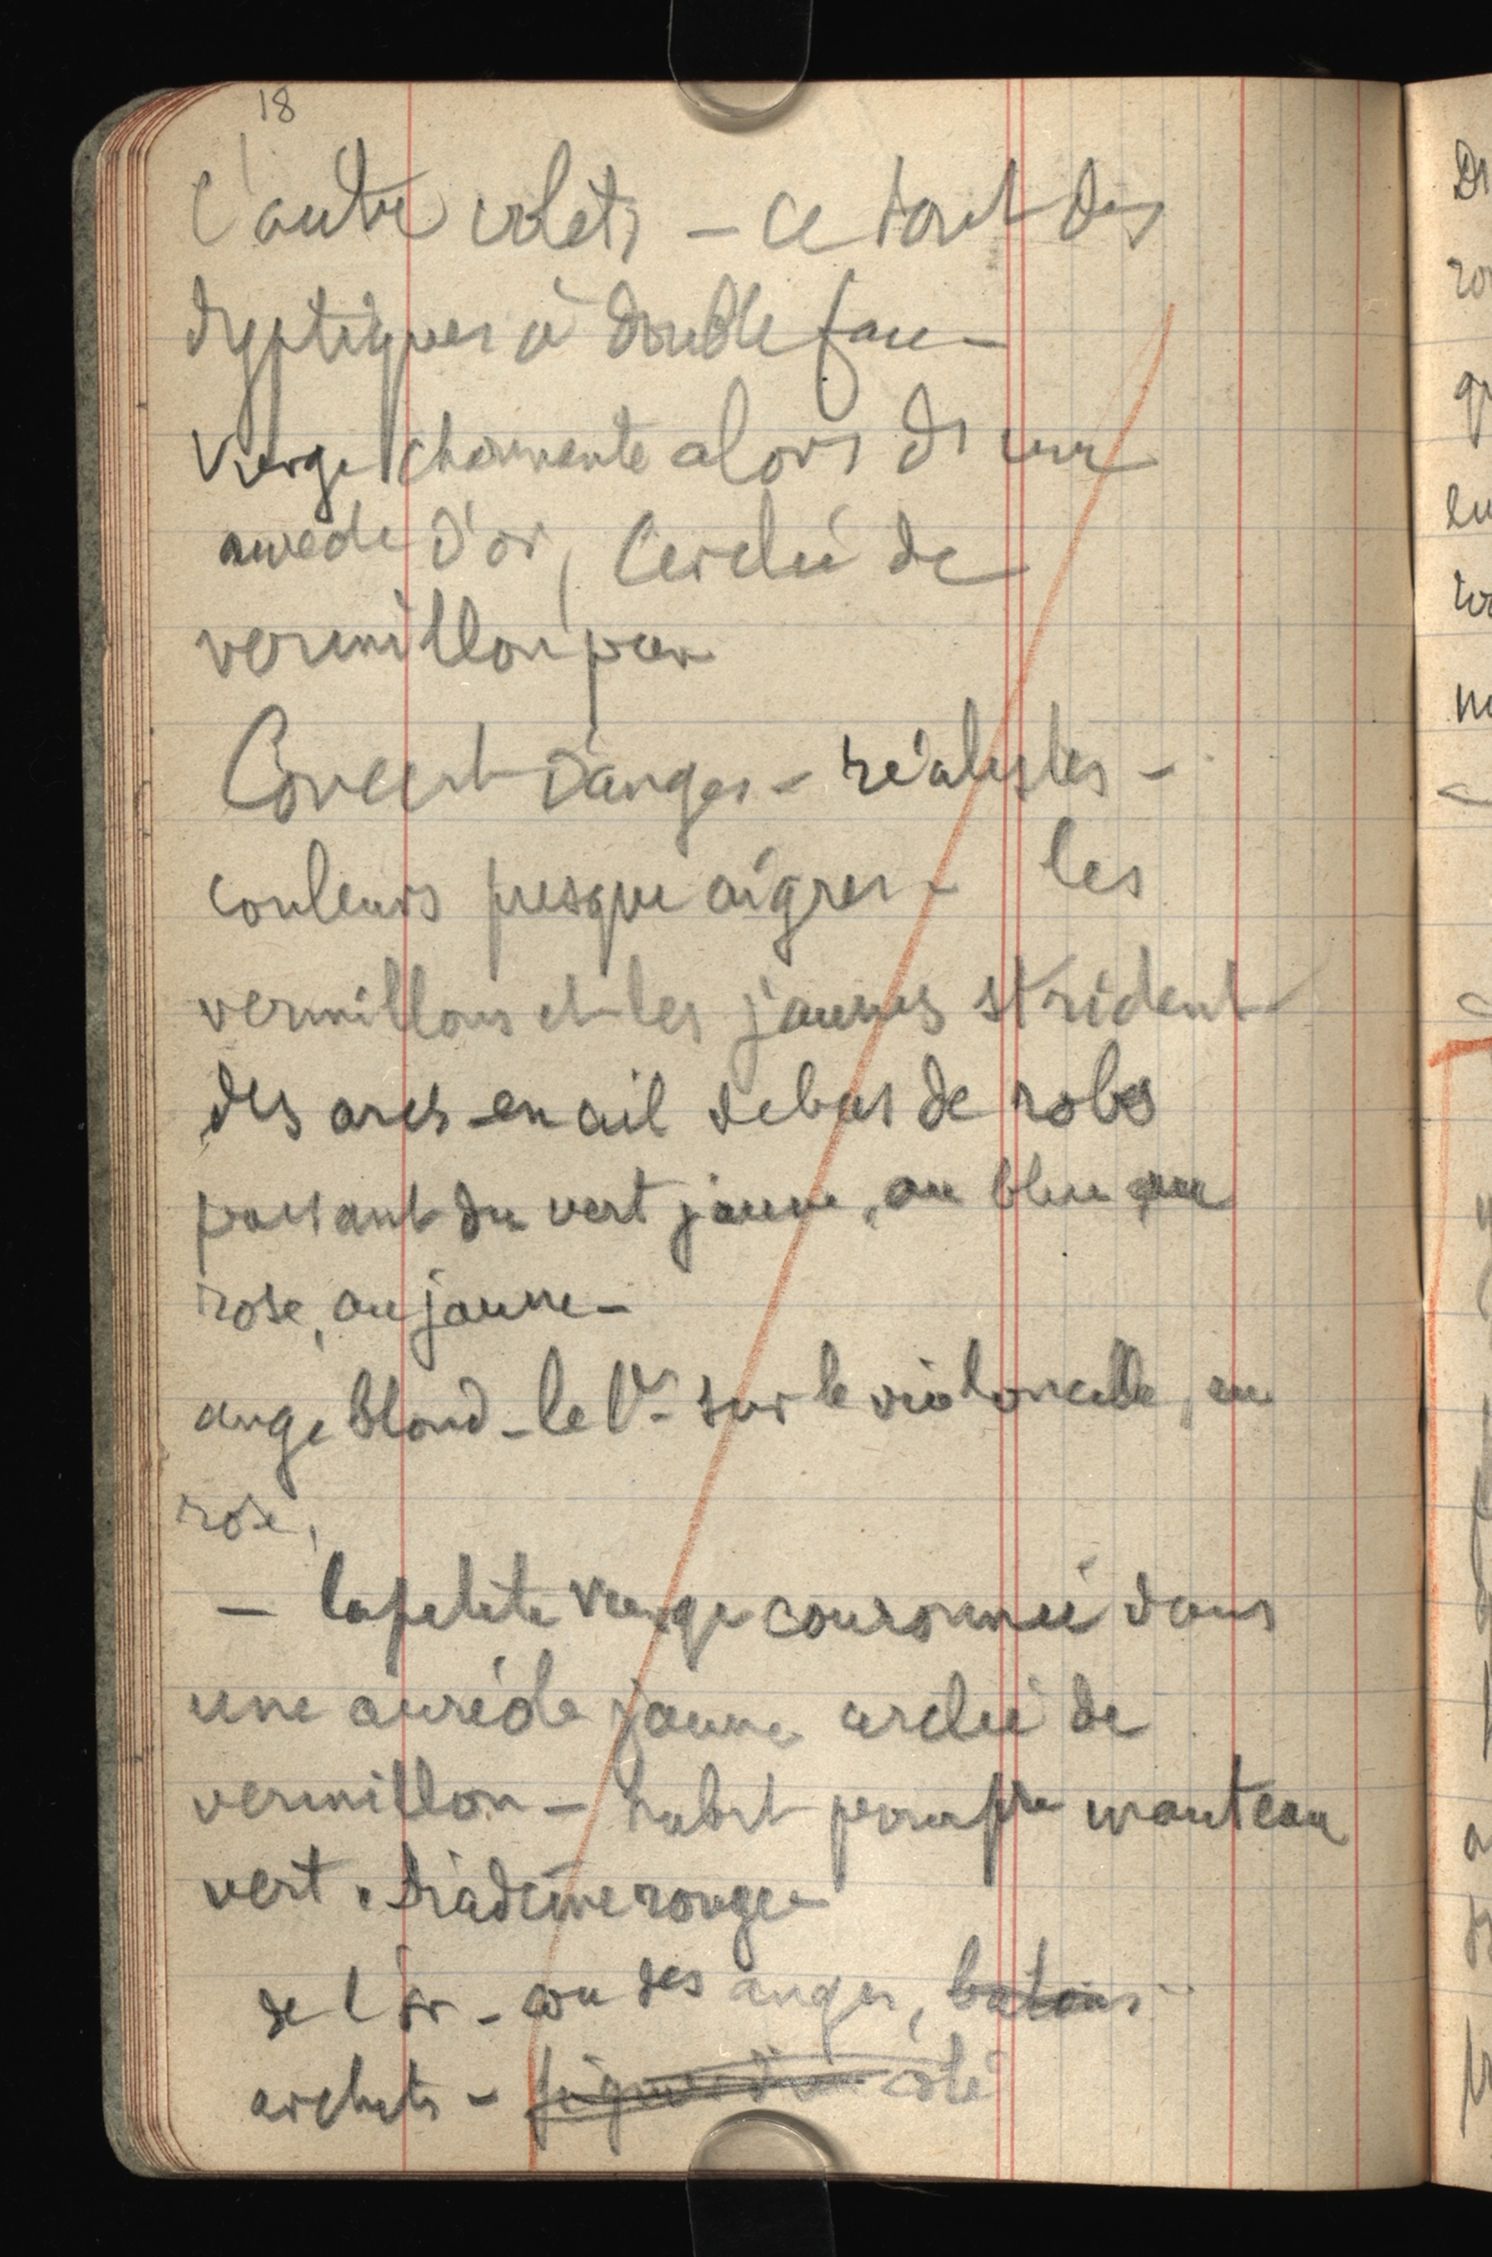 18
l'autre volets - ce sont des
dyptiques à double face -
Vierge charmante alors ds une
aureole d'or, cerclée de
vermillon pur
Concert d'anges - réalistes -
couleurs presque aigres - les
vermillons et les jaunes strident
des arcs en ciel debas de robes
passant du vert jaune, au bleu, au
rose, au jaune -
ange blond - le Vr - sur le violoncelle, en
rose,
- la petite vierge couronnée dans
une auréole jaune cerclée de
vermillon - habit pourpre manteau
vert. diadème rouge -
de l'or - cou des anges, batons
archets - figure d'un côté